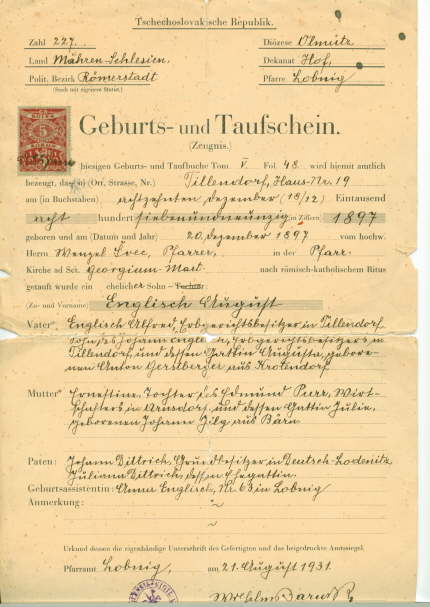 Tschechoslovakische Republik.
Zahl 227. Diözese Olmütz
Land Mähren-Schlesien. Dekanat Hof,
Polit. Bezirk Römerstadt Pfarre Lobnig
(Stadt mit eigenem Statut.)
Geburts- und Taufschein.
(Zeugnis.)
hiesigen Geburts- und Taufbuche Tom V. Fol. 48 wird hiemit amtlich
bezeugt, dass in (Ort, Strasse, Nr.) Tillendorf, Haus-Nr. 19
am (in Buchstaben) achtzehnten Dezember (18/12) Eintausend
acht hundert siebenundneunzig in Ziffern 1897
geboren und am (Datum und Jahr) 20. Dezember 1897 vom hochw.
Herrn Wenzel Švec, Pfarrer, in der Pfarr-
Kirche ad Sct. Georgium Mart nach römisch-katholischem Ritus
getauft wurde ein ehelicher Sohn – Tochter
(Zu- und Vorname) Englisch August
Vater: Englisch Alfred, Erbgerichtsbesitzer in Tillendorf
Sohn des Johann Englisch, Erbgerichtsbesitzers in
Tillendorf, und dessen Gattin Augusta, gebore-
nen Anton Gerstberger aus Krokendorf
Mutter: Ernestine, Tochter des Edmund Purr, Wirt-
schafters in Arnsdorf, und dessen Gattin Julie,
geborenen Johann Zily aus Bärn
Paten: Johann Dittrich, Grundbesitzer in Deutsch-Lodenitz
Juliana Dittrich, dessen Ehegattin
Geburtsassistentin: Anna Englisch, Nr. 63 in Lobnig
Anmerkung:
Urkund dessen die eigenhändige Unterschrift des Gefertigten und das beigedruckte Amtssiegel.
Pfarramt Lobnig, am 21. August 1931.
Wilhelm